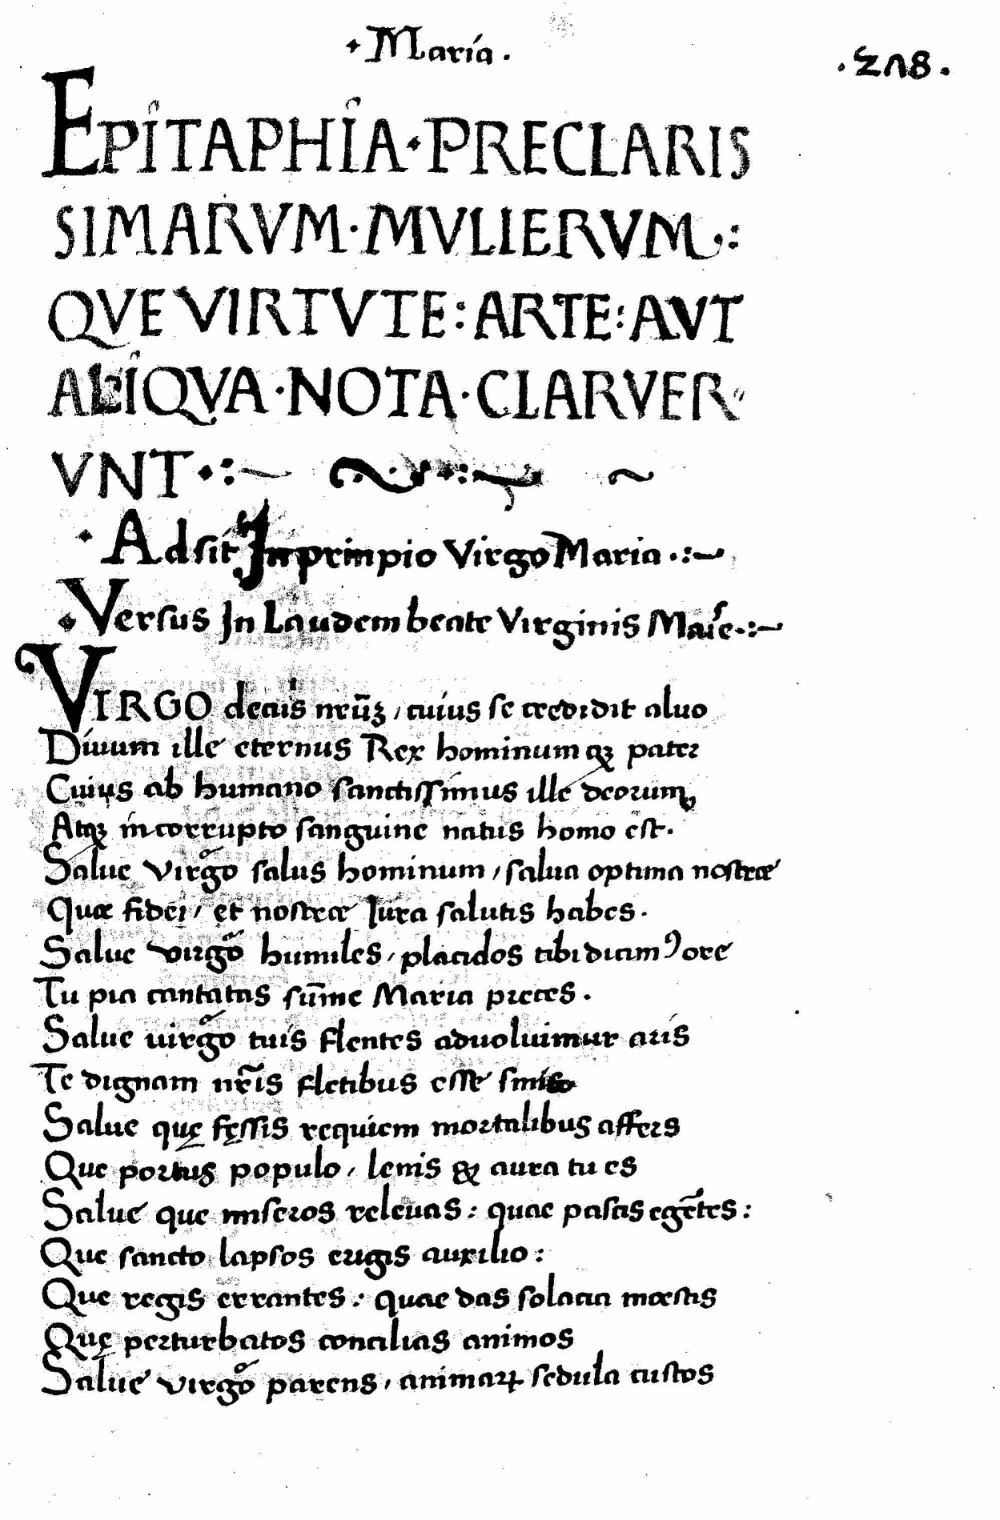 · Maria ·
· 2Λ8 ·
EPITAPHIA · PRECLARIS
SIMARVM · MVLIERVM ·:
QVE VIRTVTE : ARTE : AVT
ALIQVA · NOTA · CLARVER
VNT ·:~
· Adsit In prinpio Virgo Maria ·:~
· Versus In Laudem beate Virginis Mar̃e ·:~
VIRGO decus nr̃ũꝫ / cuius se credidit aluo
Diuum ille eternus Rex hominumqꝫ pater
Cuius ab humano sanctissimus ille deorum
Atqꝫ incorrupto sanguine natus homo est.
Salue Virgo salus hominum / salua optima nostræ
Quæ fidei / et nostræ Iura salutis habes.
Salue virgo humiles / placidos tibi dicimꝰ ore
Tu pia cantatas sum̃e Maria preces.
Salue uirgo tuis flentes aduoluimur aris
Te dignam nr̃is fletibus esse
Salue quę fęssis requiem mortalibus affers
Que portus populo / lenis & aura tu es
Salue que miseros releuas : quae pascis egẽtes :
Que sancto lapsos erigis auxilio :
Que regis errantes : quae das solacia mœstis
Quę perturbatos concilias animos
Salue virgo parens / animaꝝ sedula custos